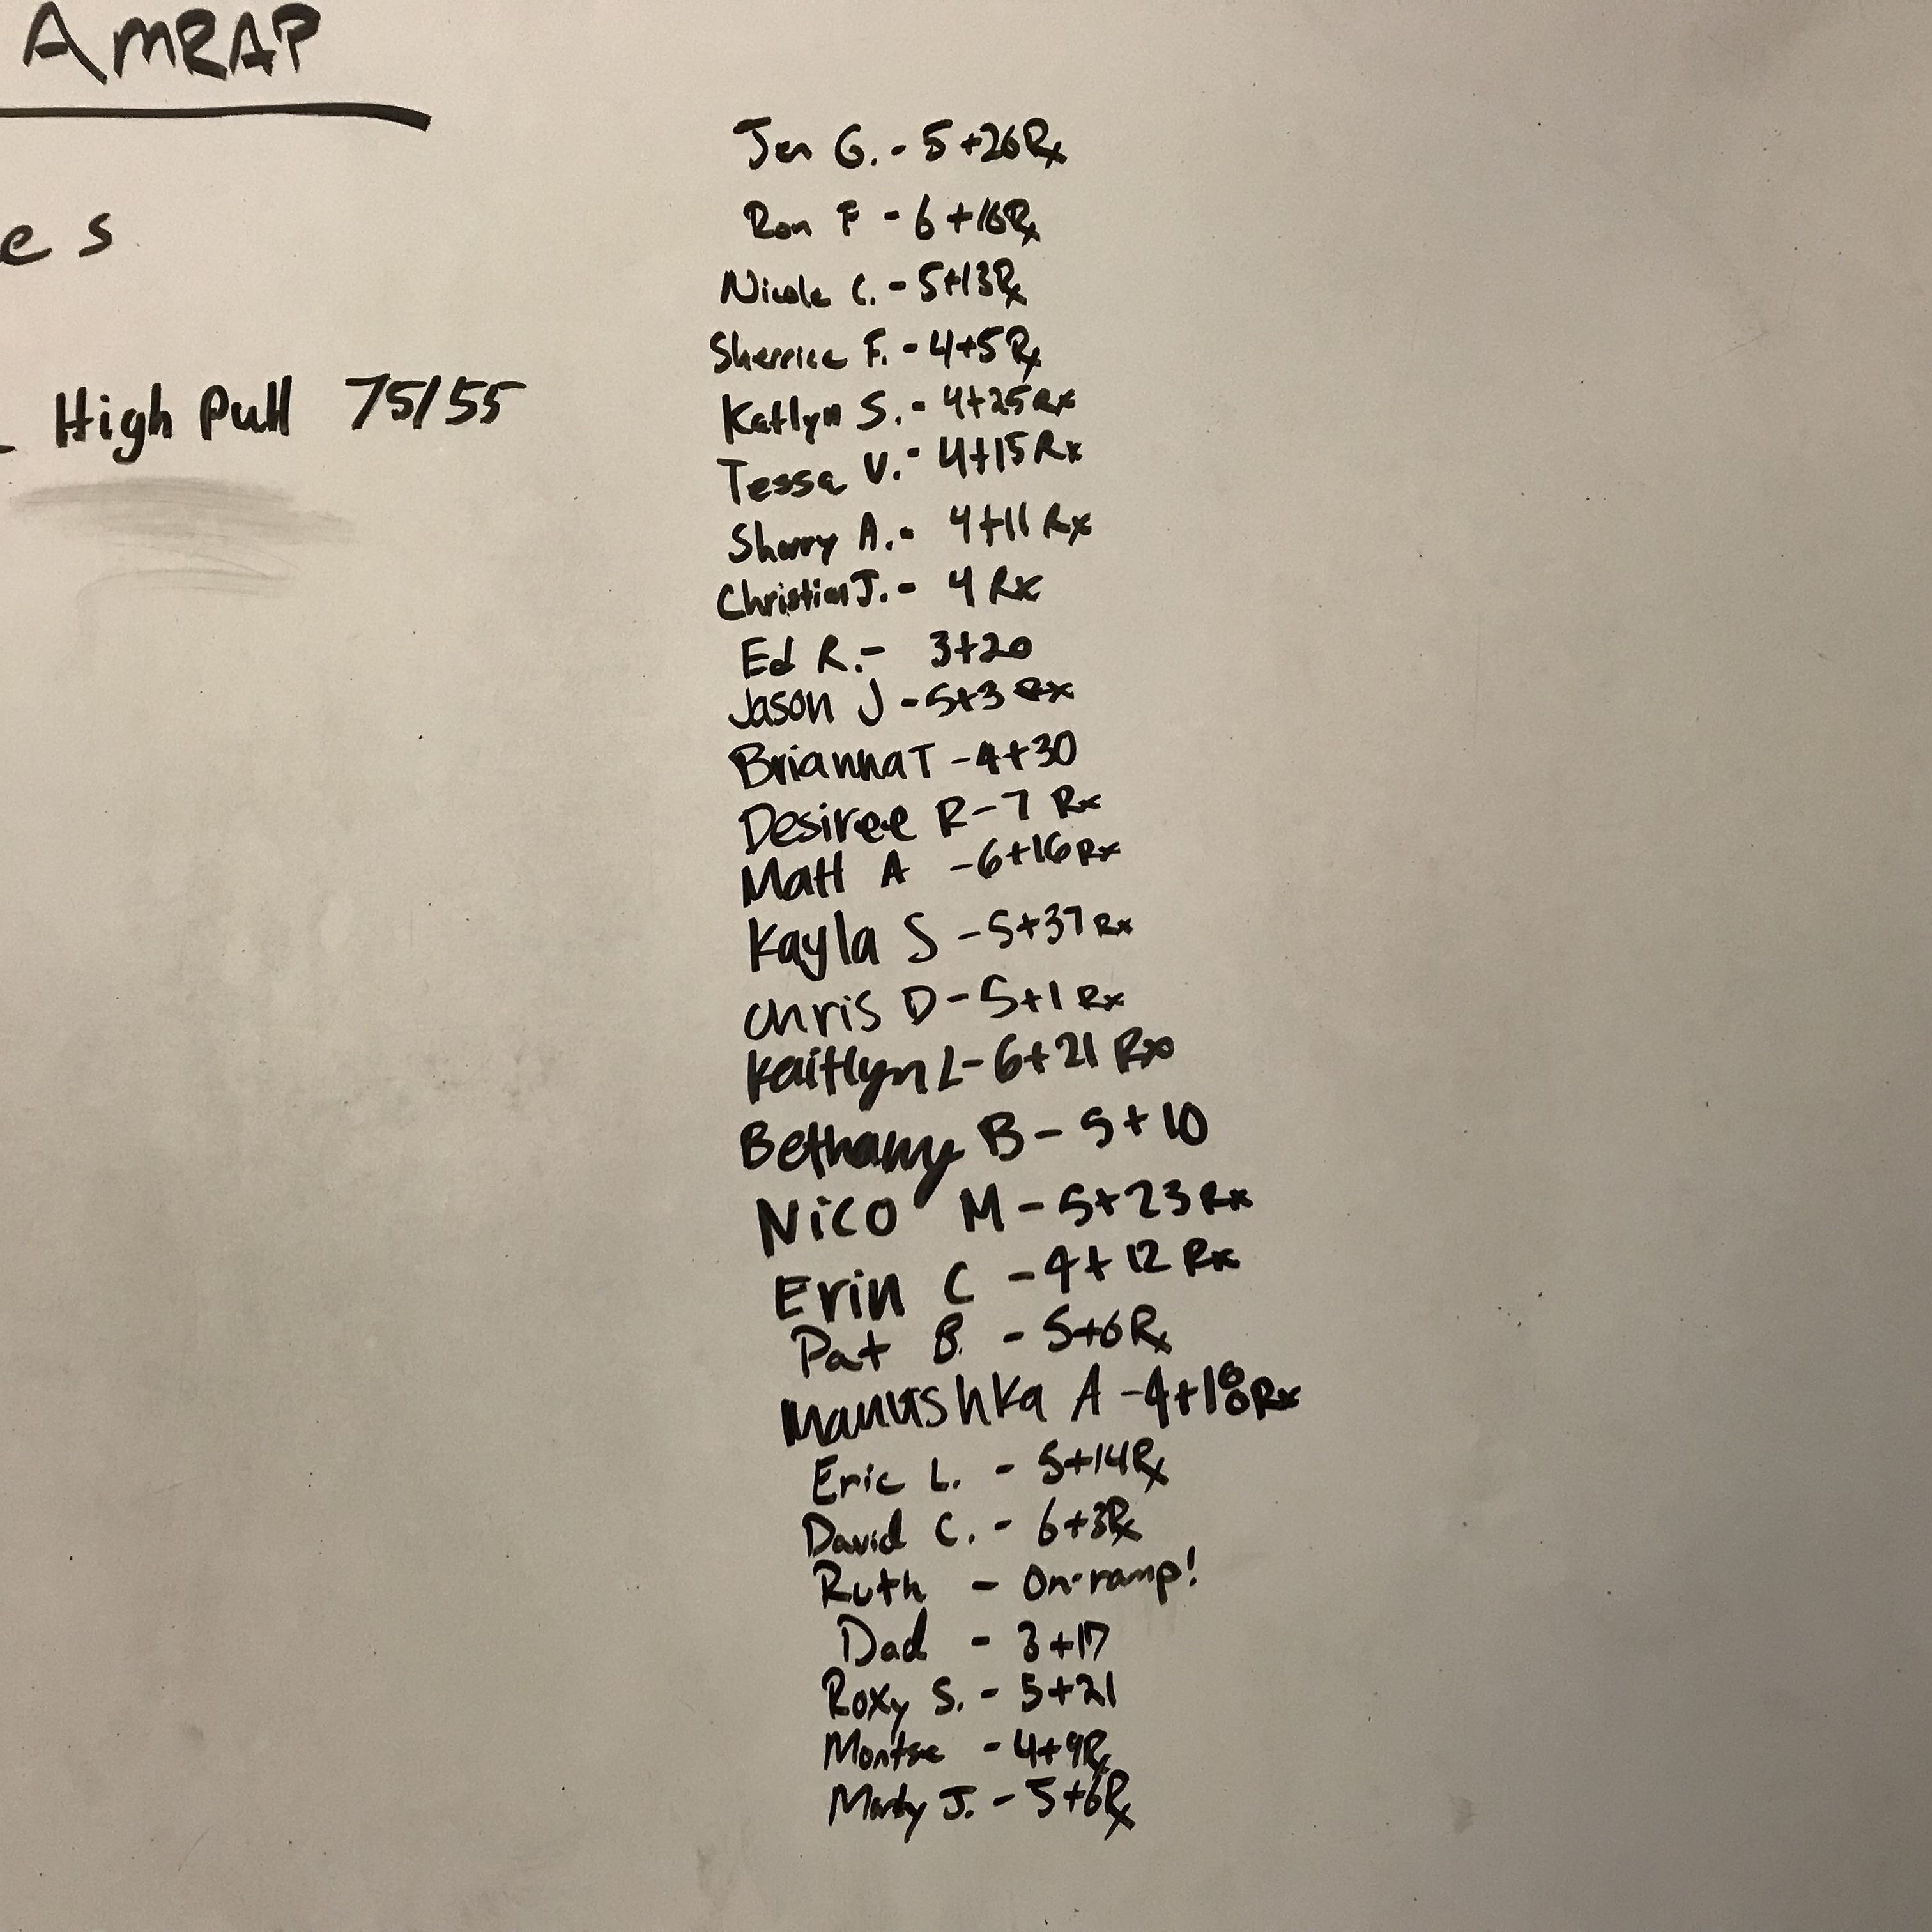 AMRAP
es
High Pull 75/55
Jen G. - 5+26Rx
Ron F - 6+16Rx
Nicole C. - 5+13Rx
Sherrice F. - 4+5Rx
Katlyn S. - 4+25Rx
Tessa V. - 4+15Rx
Sherry A. - 4+11Rx
Christian J. - 4 Rx
Ed R. - 3+20
Jason J - 5+3 Rx
Brianna T - 4+30
Desiree R - 7 Rx
Matt A - 6+16Rx
Kayla S - 5+37Rx
Chris D - 5+1 Rx
Kaitlyn L - 6+21 Rx
Bethany B - 5+10
Nico M - 5+23Rx
Erin C - 4+12 Rx
Pat B. - 5+6Rx
Manushka A - 4+18Rx
Eric L. - 5+14Rx
David C. - 6+3Rx
Ruth - On-ramp!
Dad - 3+17
Roxy S. - 5+21
Montse - 4+9Rx
Marty J. - 5+6Rx